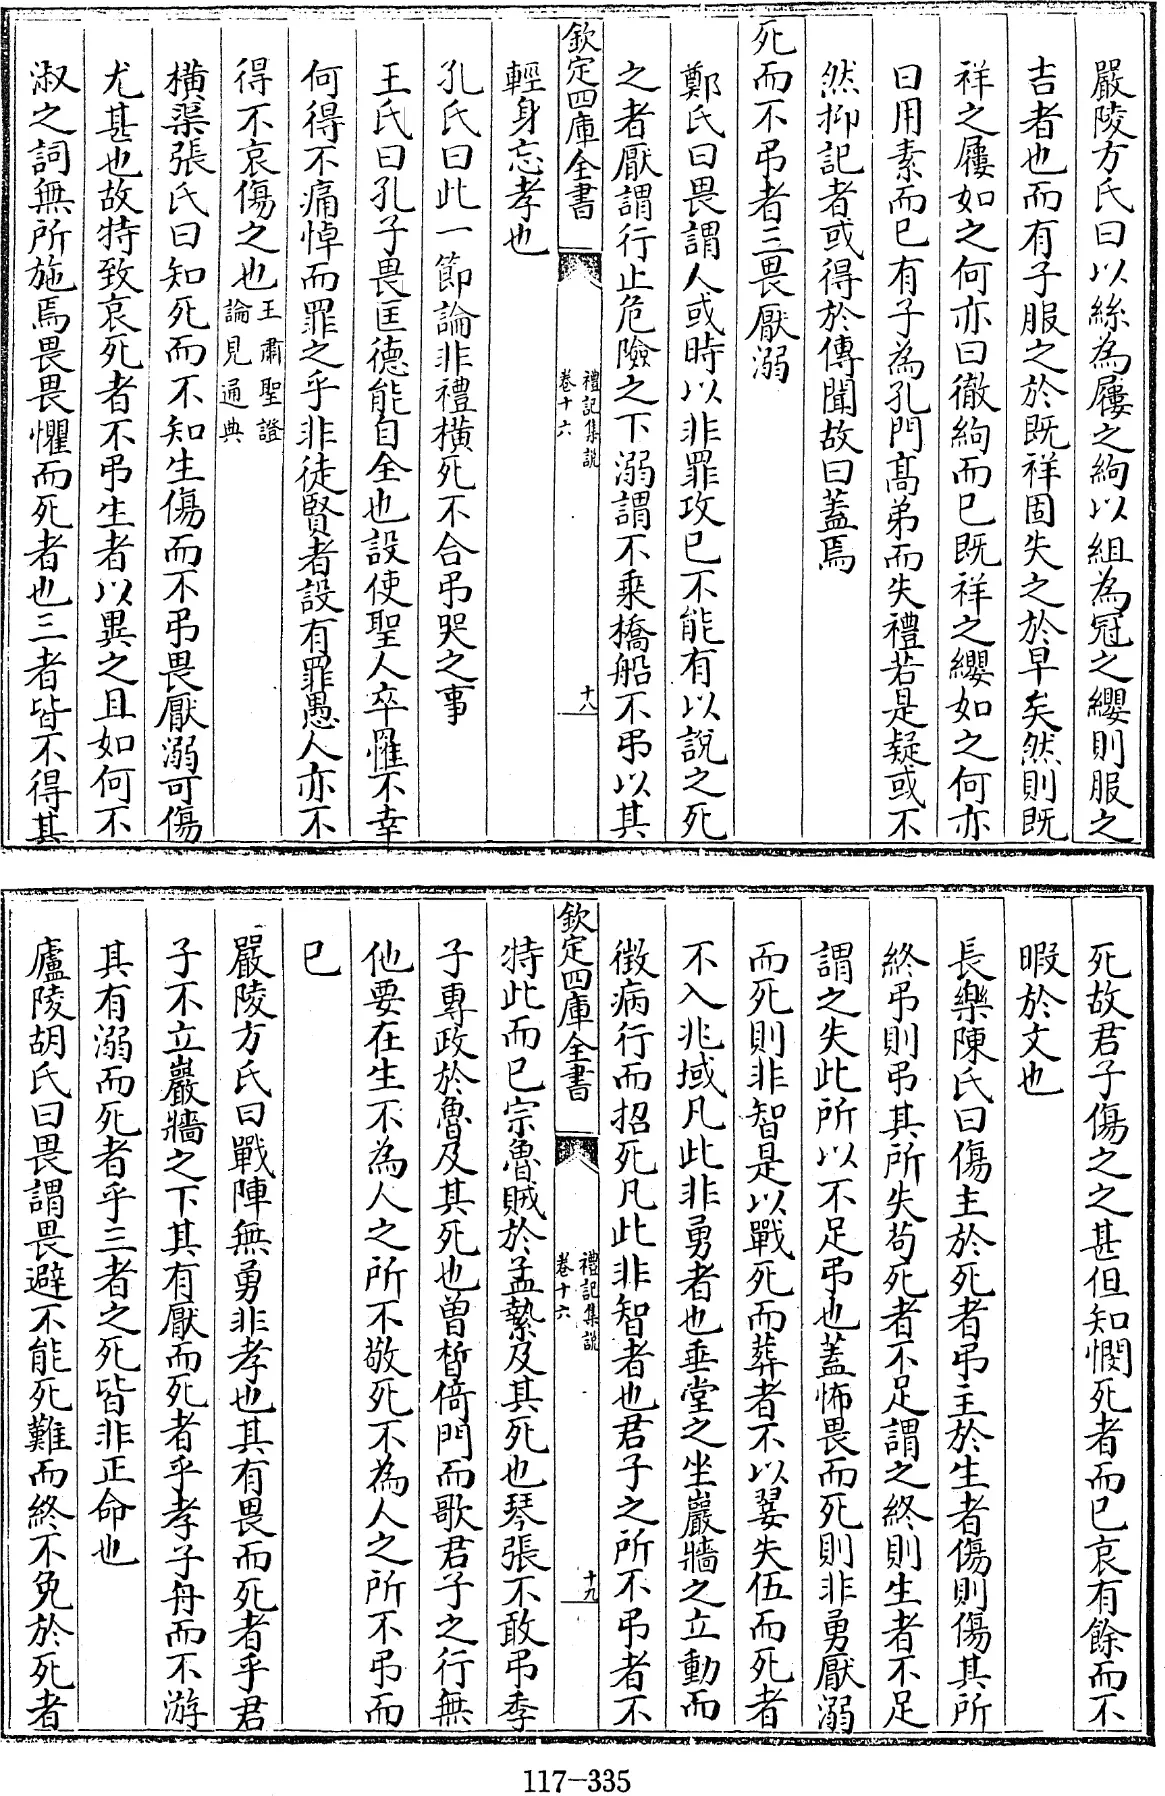 嚴陵方氏曰以絲為屨之絇以組為冠之纓則服之
吉者也而有子服之於既祥固失之於早矣然則既
祥之屨如之何亦曰徹絇而已既祥之纓如之何亦
曰用素而已有子為孔門髙弟而失禮若是疑或不
然抑記者或得於傳聞故曰蓋焉
死而不弔者三畏厭溺
鄭氏曰畏謂人或時以非罪攻已不能有以說之死
之者厭謂行止危險之下溺謂不乗橋船不弔以其
欽定四庫全書
禮記集說
卷十六
十八
輕身忘孝也
孔氏曰此一節論非禮橫死不合弔哭之事
王氏曰孔子畏匡德能自全也設使聖人卒罹不幸
何得不痛悼而罪之乎非徒賢者設有罪愚人亦不
得不哀傷之也王肅聖證
論見通典
橫渠張氏曰知死而不知生傷而不弔畏厭溺可傷
尤甚也故特致哀死者不弔生者以異之且如何不
淑之詞無所施焉畏畏懼而死者也三者皆不得其
死故君子傷之之甚但知憫死者而已哀有餘而不
暇於文也
長樂陳氏曰傷主於死者弔主於生者傷則傷其所
終弔則弔其所失茍死者不足謂之終則生者不足
謂之失此所以不足弔也蓋怖畏而死則非勇厭溺
而死則非智是以戰死而葬者不以翣失伍而死者
不入兆域凡此非勇者也垂堂之坐巖牆之立動而
徴病行而招死凡此非智者也君子之所不弔者不
欽定四庫全書
禮記集說
卷十六
十九
特此而已宗魯賊於孟縶及其死也琴張不敢弔季
子專政於魯及其死也曾皙倚門而歌君子之行無
他要在生不為人之所不敬死不為人之所不弔而
已
嚴陵方氏曰戰陣無勇非孝也其有畏而死者乎君
子不立巖牆之下其有厭而死者乎孝子舟而不游
其有溺而死者乎三者之死皆非正命也
廬陵胡氏曰畏謂畏避不能死難而終不免於死者
117-335